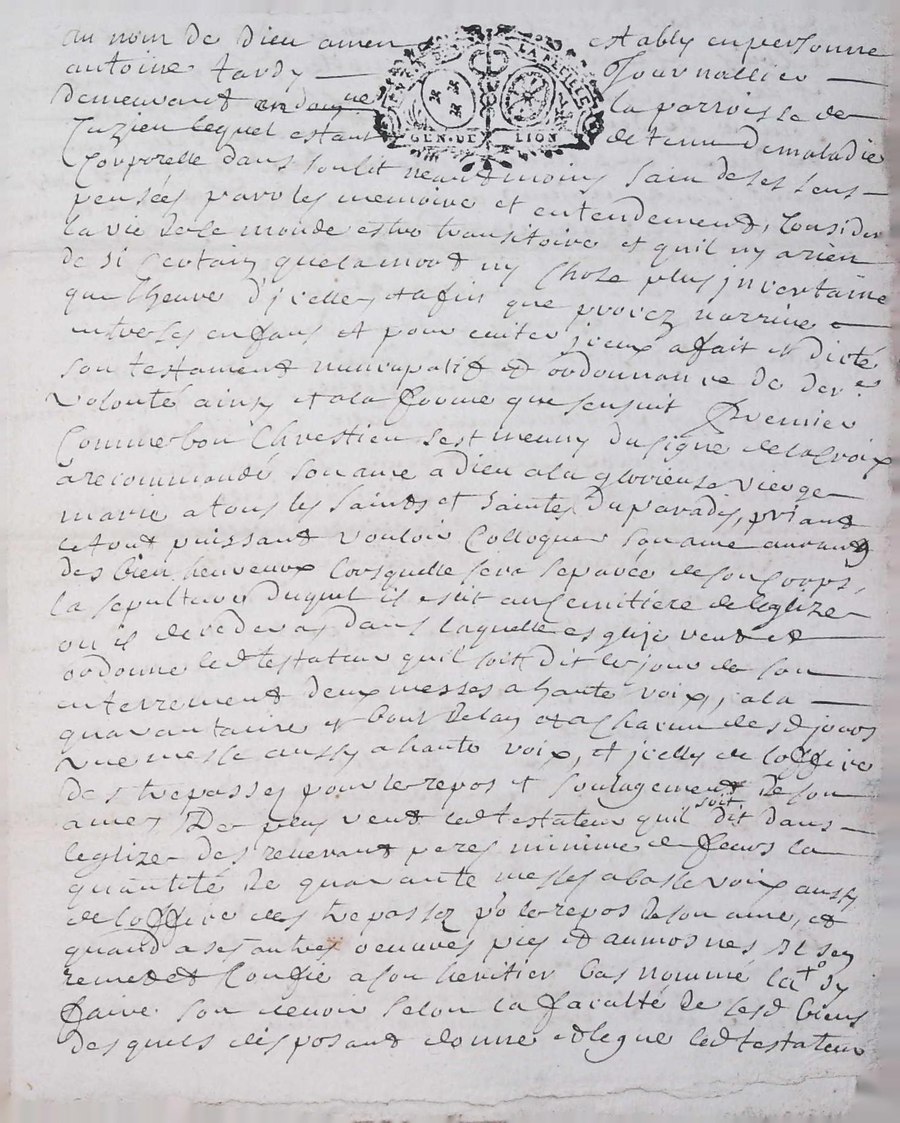 au nom de dieu amen establÿ en personne
antoine tardy Journallier
demeurant en la parroisse de
Cuzieu lequel estant detenu de maladie
Corporelle dans son lit neantmoins sain de ses sens
pensées parolles memoire et entendement, Consider
la vie de ce monde estre transitoire et quil ny a rien
de si certain que la mort ny Chose plus jncertaine
que lheure d'jcelle, et afin que procez narrive
entre ses enfans et pour eviter jceux a fait et dicté
son testament nuncupatif et ordonnance de der.e
volonté ainsy et a la forme que sensuit Premier
Comme bon Chrestien sest meuny du signe de la Croix
a recommandé son ame a dieu a la glorieuse vierge
marie a tous les saints et saintes du paradis, priant
le tout puissant vouloir Colloquer son ame au rang
des bien heureux lorsquelle sera separée de son corps,
la sepulture duquel il eslit au semitiere de leglize
ou il decedera dans laquelle esglize veut et
ordonne led testateur quil soit dit le jour de son
enterrement deux messes a haute voix, a la
quarantaine et bout de lan et a Chacun desd jours
une messe aussy a haute voix, et jcelles de loffice
des trepasses pour le repos et soulagement de son
ame, De plus veut led testateur quil soit dit dans
leglize des reverant peres minime de feurs la
quantité de quarante messes a basse voix aussy
de loffice des trepassez p.r le repos de son ame, et
quand a ses autres oeuvres pies et aumosnes Il sen
remet et Confie a son heritier bas nommé
faire son devoir selon la faculté de sesd biens
desquels disposant donne et legue led testateur
GEN. DE LION